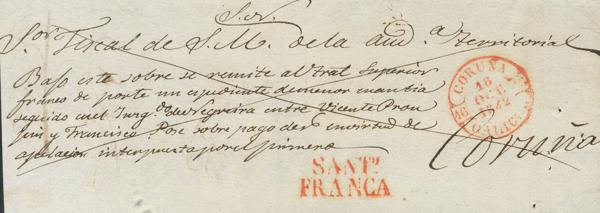 S.N.
Sor. Fiscal de S. M. de la Aud.a territorial
Bajo este sobre se remite al tral Superior
franco de porte un espediente de menor cuantia
seguido en el Juzg.do de Negreira entre Vicente
y Francisco Pose sobre pago de en virtud de
apelacion interpuesta por el primero
Coruña
CORUÑA
16
DIC
1842
GALICIA
SANT.º
FRANCA